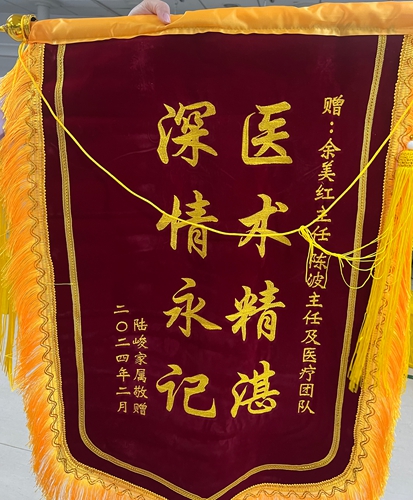 赠：余美红主任 陈波主任及医疗团队
医术精湛
深情永记
陆峻家属敬赠
二〇二四年二月